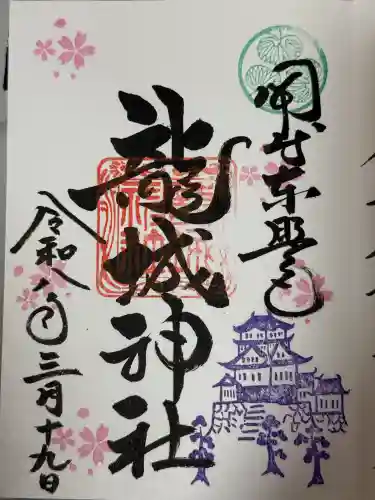 開運東照宮
龍城神社
令和八年三月十九日